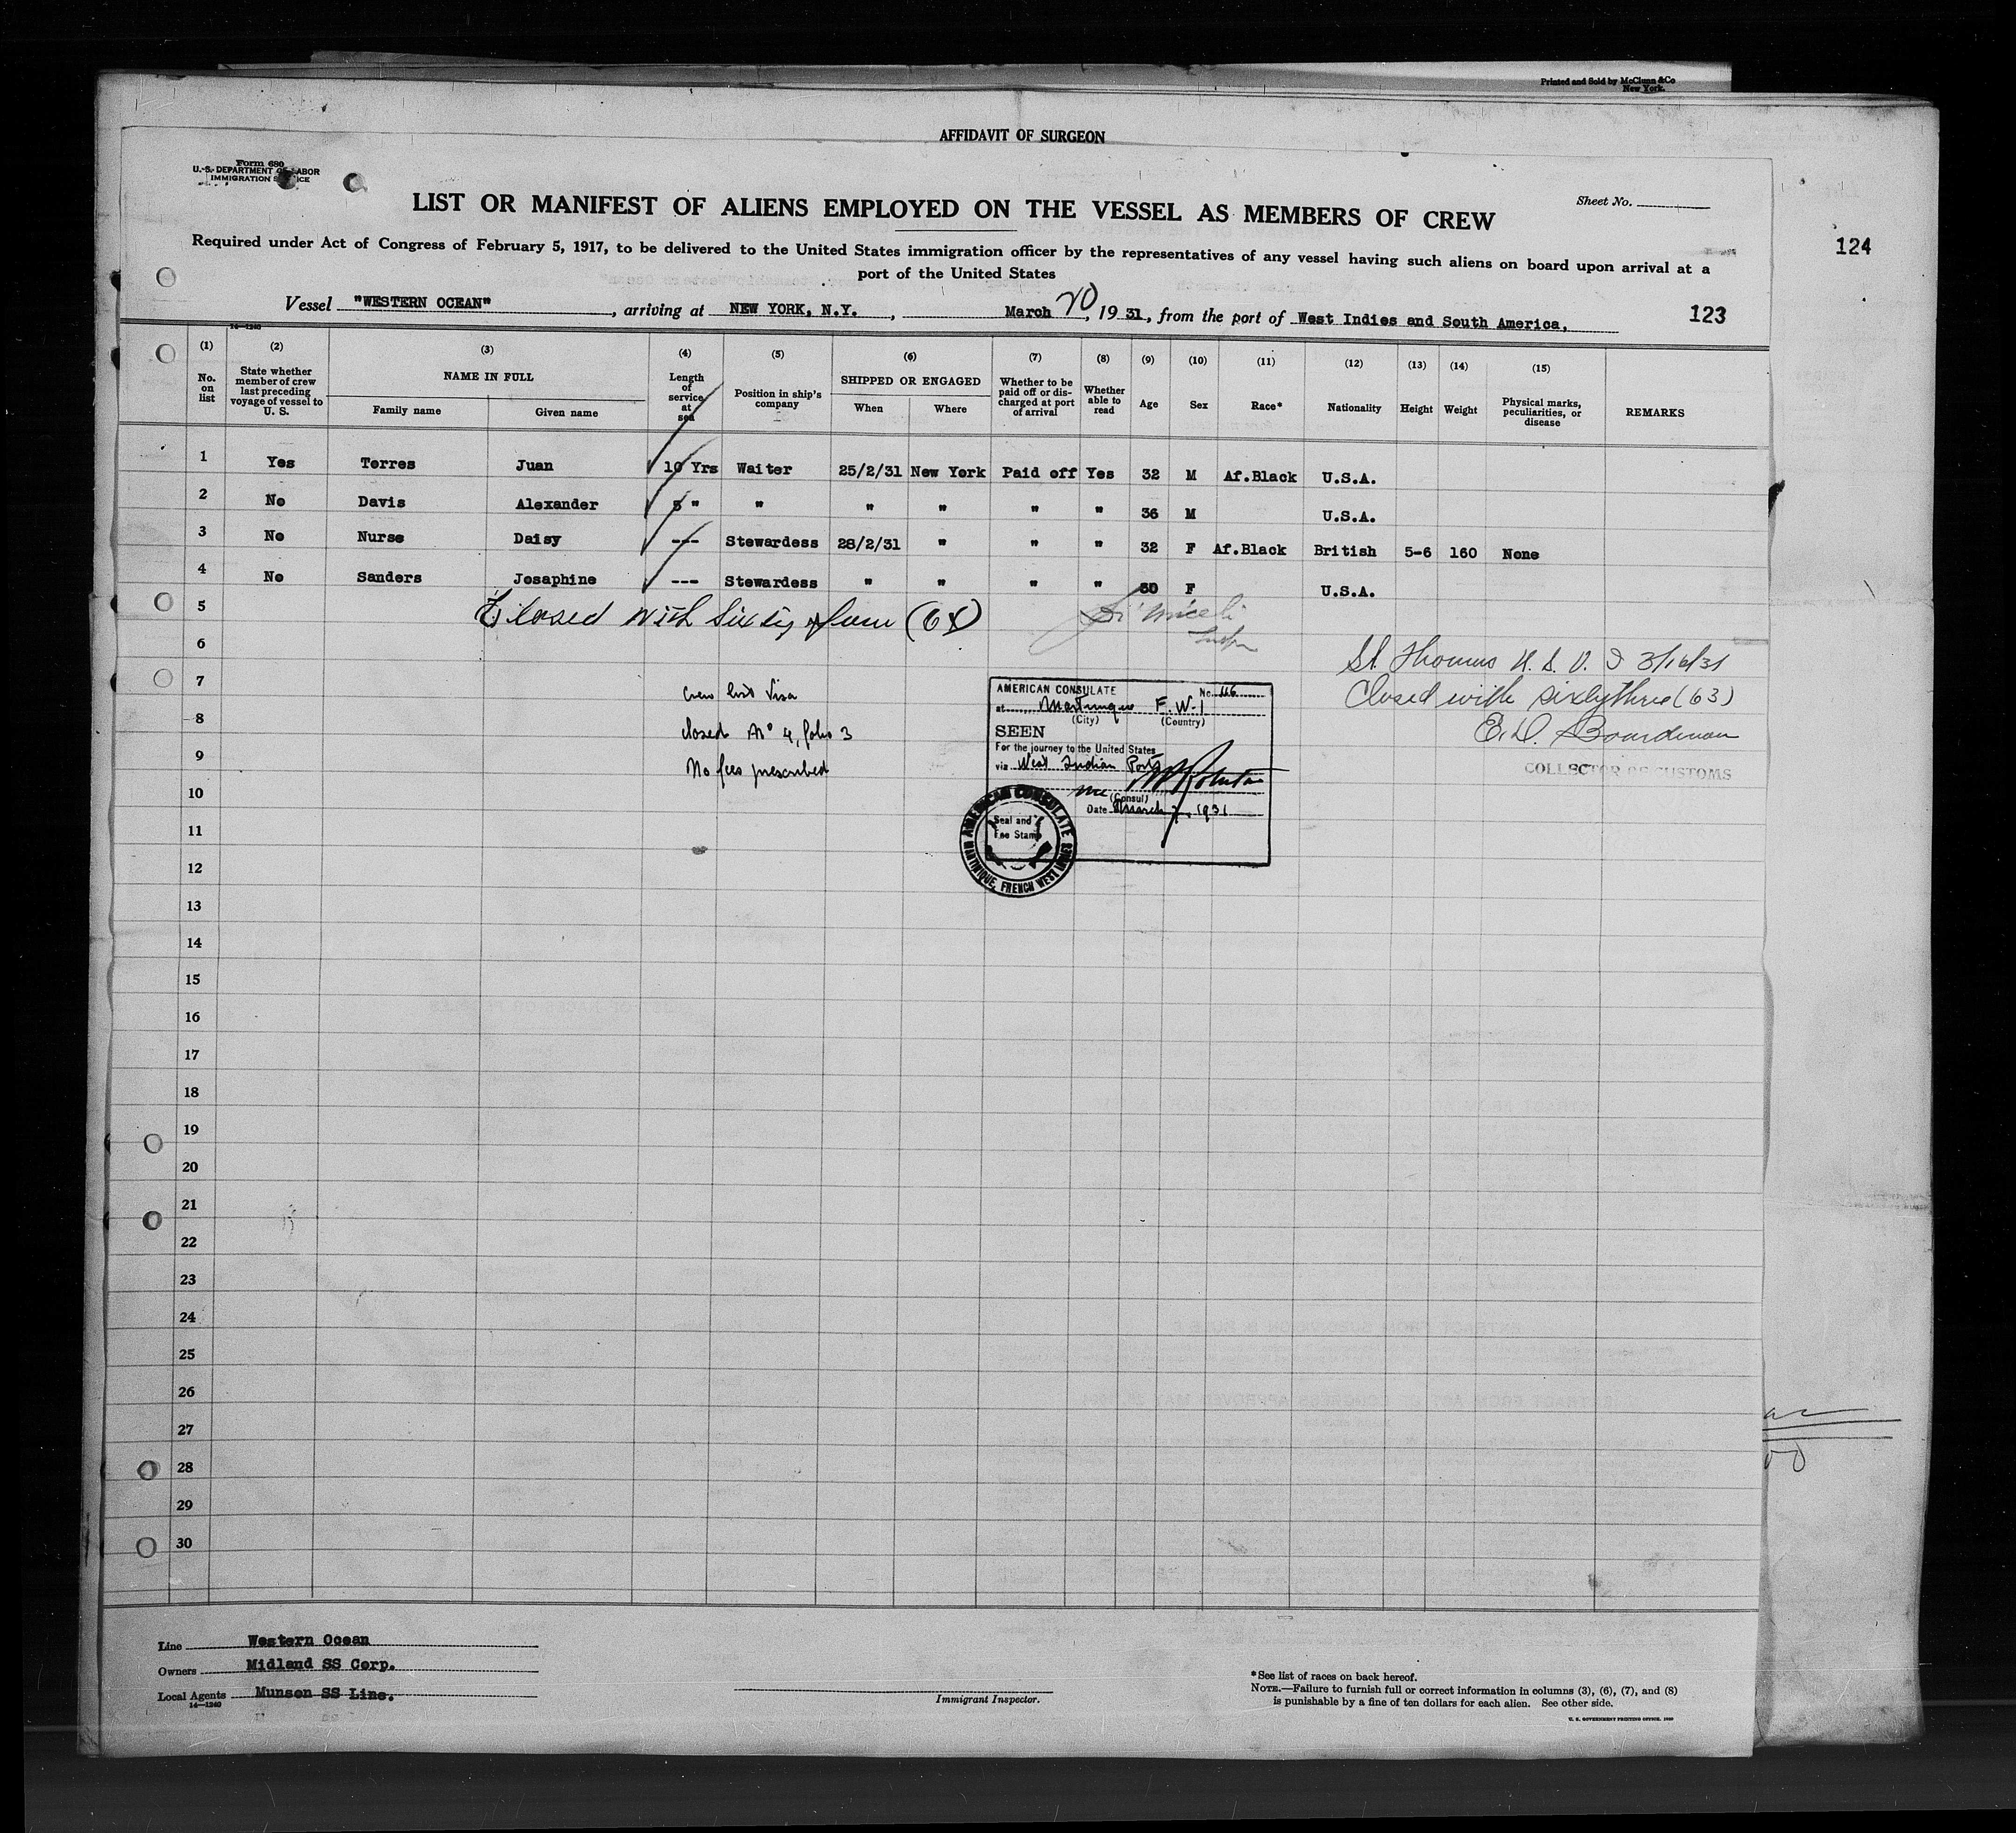 Printed and Sold by McClunn & Co
New York.
AFFIDAVIT OF SURGEON
Form 680
U.-S. DEPARTMENT OF LABOR
IMMIGRATION SERVICE
LIST OR MANIFEST OF ALIENS EMPLOYED ON THE VESSEL AS MEMBERS OF CREW
Sheet No.
Required under Act of Congress of February 5, 1917, to be delivered to the United States immigration officer by the representatives of any vessel having such aliens on board upon arrival at a
port of the United States
124
Vessel "WESTERN OCEAN", arriving at NEW YORK, N.Y., March 20, 1931, from the port of West Indies and South America,
123
14—1240
(1) (2) (3) (4) (5) (6) (7) (8) (9) (10) (11) (12) (13) (14) (15)
No. on list
State whether member of crew last preceding voyage of vessel to U. S.
NAME IN FULL
Family name Given name
Length of service at sea
Position in ship's company
SHIPPED OR ENGAGED
When Where
Whether to be paid off or discharged at port of arrival
Whether able to read
Age Sex Race* Nationality Height Weight
Physical marks, peculiarities, or disease
REMARKS
1 Yes Torres Juan 10 Yrs Waiter 25/2/31 New York Paid off Yes 32 M Af.Black U.S.A.
2 No Davis Alexander 5 " " " " " " 36 M U.S.A.
3 No Nurse Daisy --- Stewardess 28/2/31 " " " 32 F Af.Black British 5-6 160 None
4 No Sanders Josaphine --- Stewardess " " " " 30 F U.S.A.
5 Closed with Sixty four (64)
6
St Thomas U. S. V. I 3/16/31
7 Crew list Visa
Closed with sixtythree (63)
8 closed No 4, folio 3
E. D. Boardman
9 No fees prescribed
COLLECTOR OF CUSTOMS
AMERICAN CONSULATE No. 46
at Martinique F.W.I
(City) (Country)
SEEN
For the journey to the United States
via West Indian Ports
(Consul)
Date March 7, 1931
Seal and
Fee Stamp
AMERICAN CONSULATE
MARTINIQUE, FRENCH WEST INDIES
10
11
12
13
14
15
16
17
18
19
20
21
22
23
24
25
26
27
28
29
30
Line Western Ocean
Owners Midland SS Corp.
Local Agents Munson SS Line.
14—1240
Immigrant Inspector.
*See list of races on back hereof.
NOTE.—Failure to furnish full or correct information in columns (3), (6), (7), and (8)
is punishable by a fine of ten dollars for each alien. See other side.
U. S. GOVERNMENT PRINTING OFFICE. 1930